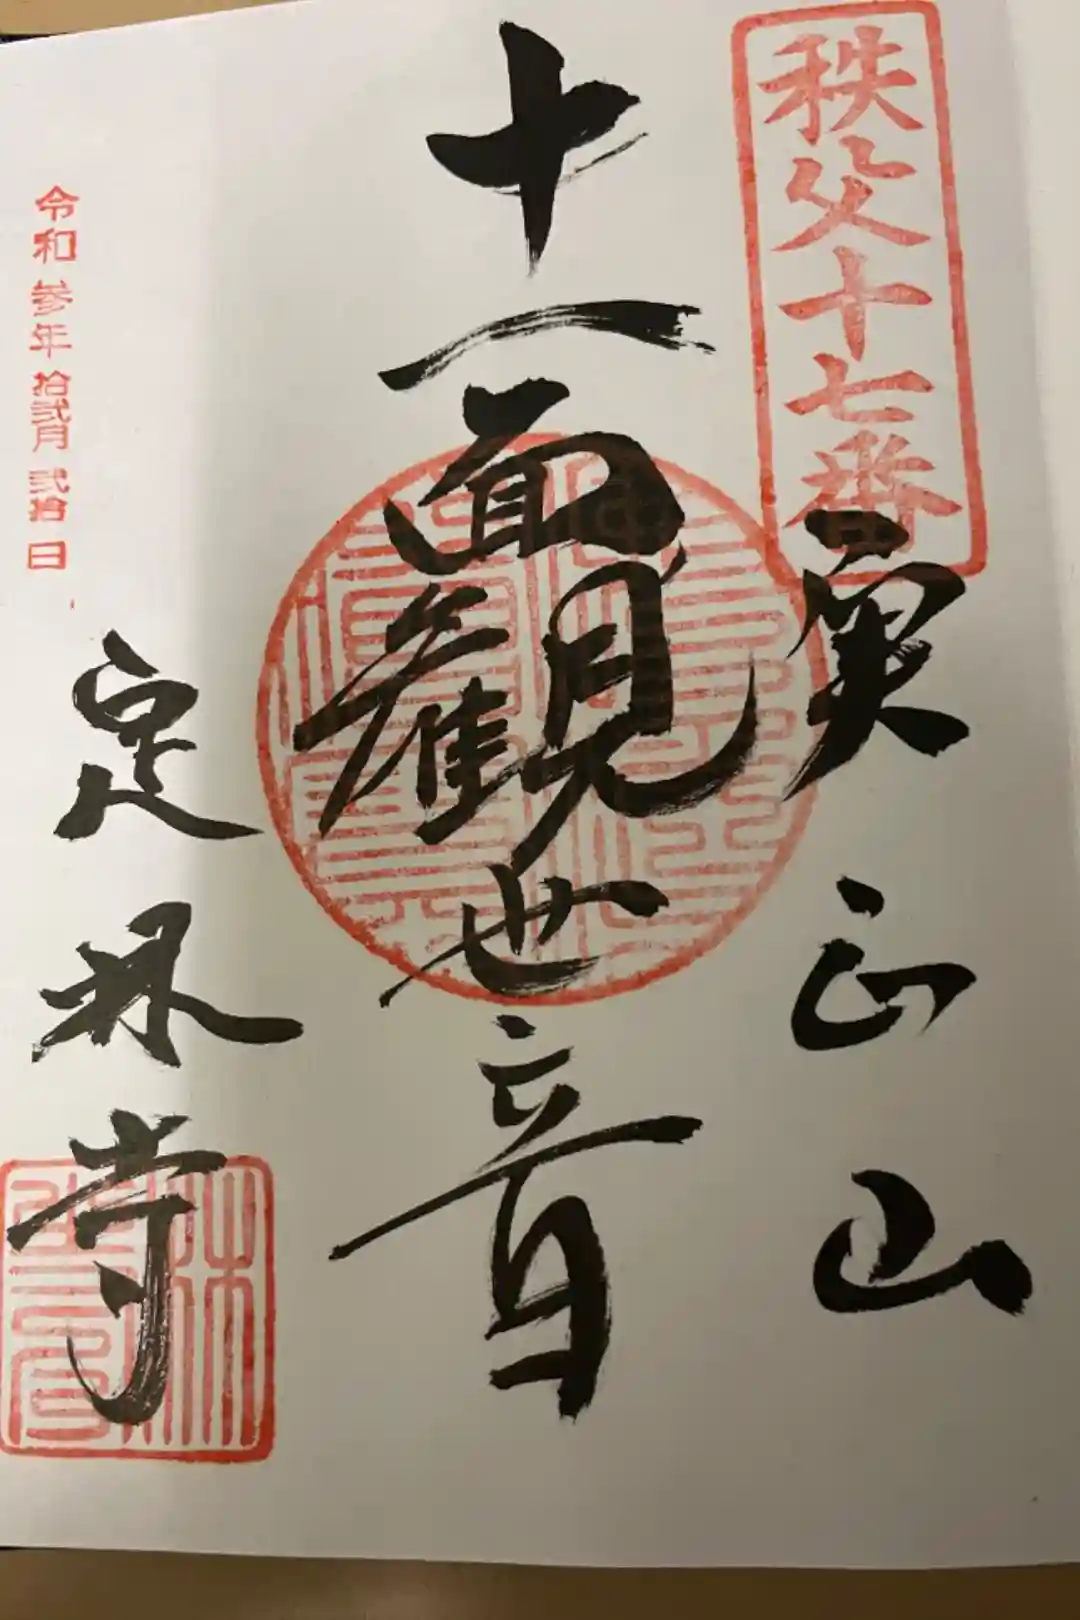 秩父十七番
実正山
十一面観世音
定林寺
令和参年拾弐月弐拾日